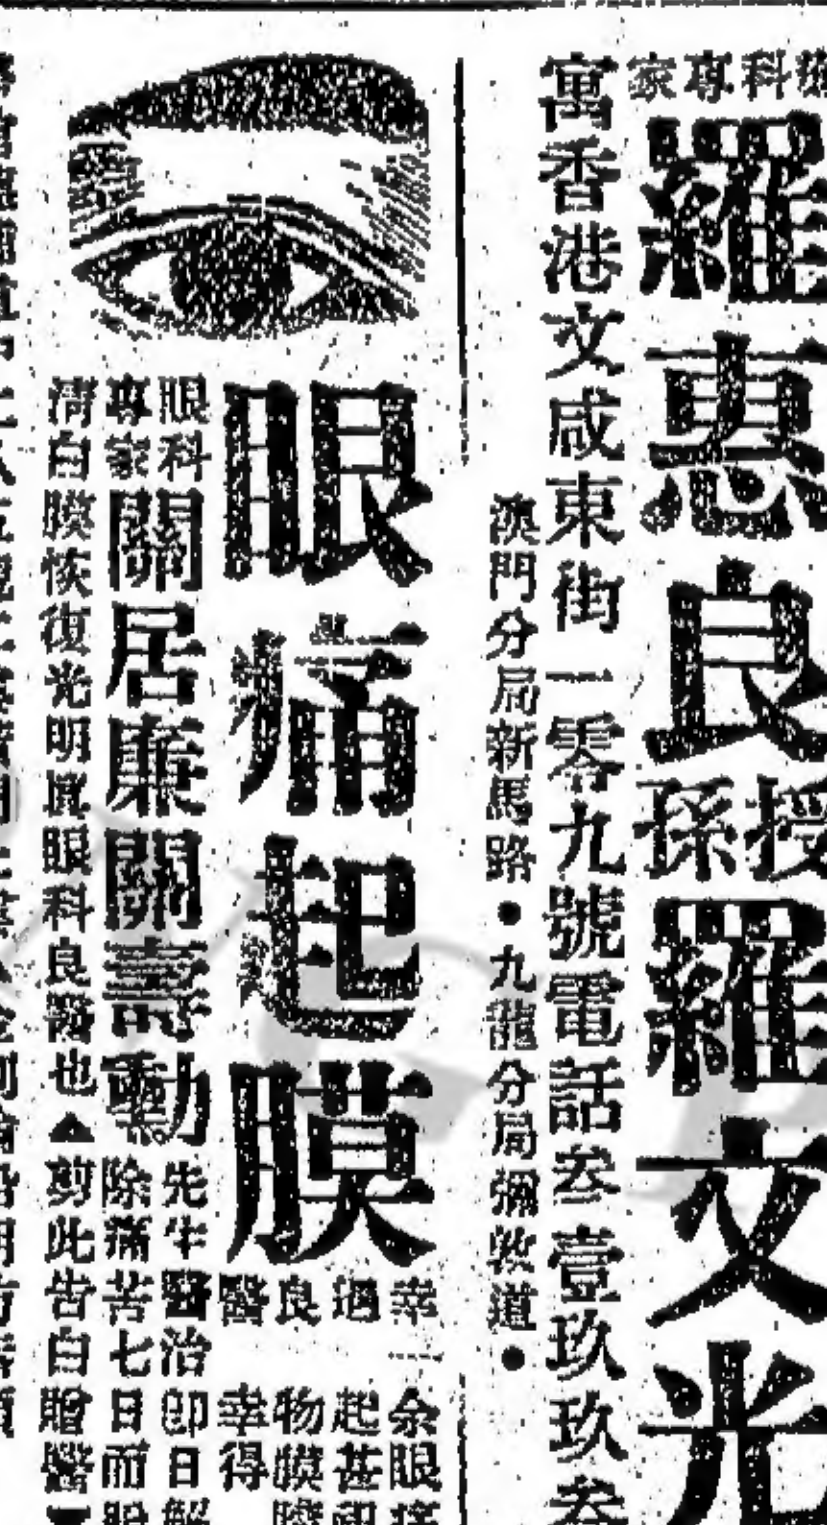 科專家
羅惠良
授孫
羅文光
寓香港文咸東街一零九號電話叁壹玖玖叁
澳門分局新馬路●九龍分局彌敦道●
眼痛起膜
幸遇良醫
余眼痛
起甚
物膜
幸得
眼科專家
關居廉關壽勳
先生醫治即日解
除痛苦七日而眼
清白膜恢復光明眞眼科良醫也▲剪此告白贈醫